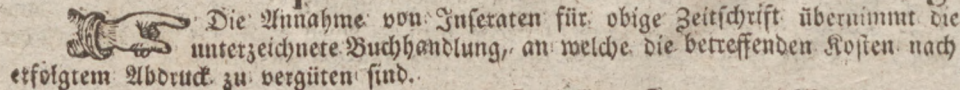 Die Annahme von Inseraten für obige Zeitschrift übernimmt die
unterzeichnete Buchhandlung, an welche die betreffenden Kosten nach
erfolgtem Abdruck zu vergüten sind.